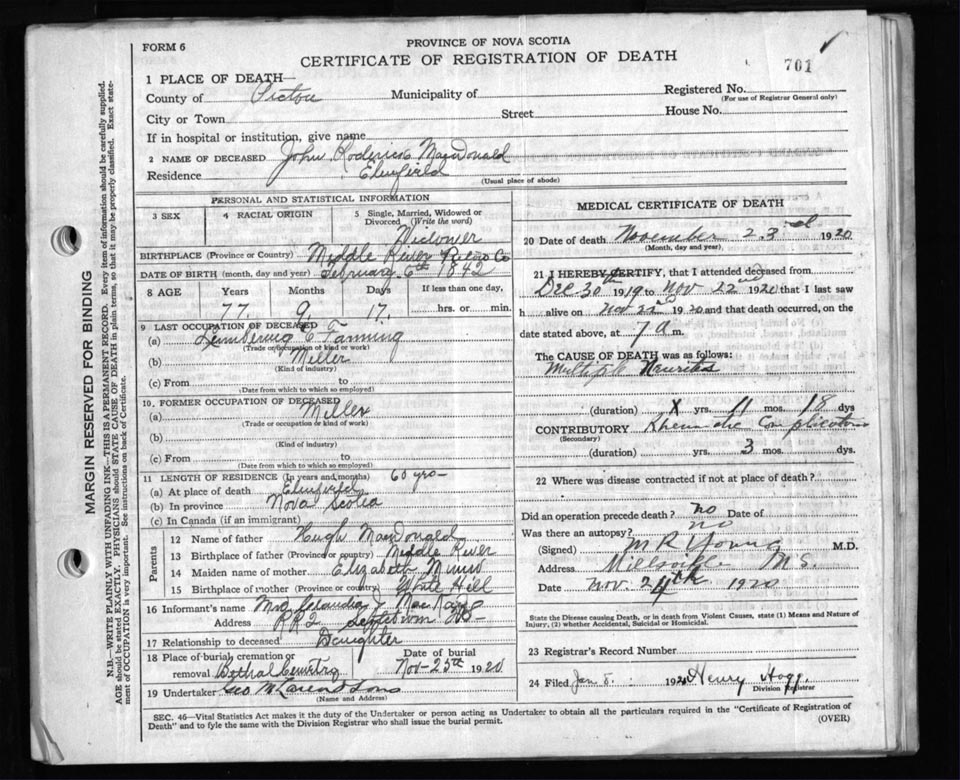 FORM 6
PROVINCE OF NOVA SCOTIA
CERTIFICATE OF REGISTRATION OF DEATH
701
1 PLACE OF DEATH—
County of Pictou Municipality of Registered No.
(For use of Registrar General only)
City or Town Street House No.
If in hospital or institution, give name
2 NAME OF DECEASED John Roderick MacDonald
Residence Elmfield
(Usual place of abode)
MARGIN RESERVED FOR BINDING
N.B.—WRITE PLAINLY WITH UNFADING INK—THIS IS A PERMANENT RECORD. Every item of information should be carefully supplied.
AGE should be stated EXACTLY. PHYSICIANS should STATE CAUSE OF DEATH in plain terms, so that it may be properly classified. Exact state-
ment of OCCUPATION is very important. See instructions on back of Certificate.
PERSONAL AND STATISTICAL INFORMATION
3 SEX 4 RACIAL ORIGIN 5 Single, Married, Widowed or
Divorced (Write the word)
Widower
BIRTHPLACE (Province or Country) Middle River Pictou Co
DATE OF BIRTH (month, day and year) February 6th 1842
8 AGE Years Months Days If less than one day,
77 9 17 hrs. or min.
9 LAST OCCUPATION OF DECEASED
(a) Lumbering & Farming
(Trade or occupation of kind or work)
(b) Miller
(Kind of industry)
(c) From to
(Date from which to which so employed)
10. FORMER OCCUPATION OF DECEASED
(a) Miller
(Trade or occupation of kind or work)
(b)
(Kind of industry)
(c) From to
(Date from which to which so employed)
11 LENGTH OF RESIDENCE (In years and months) 60 yrs
(a) At place of death Elmfield
(b) In province Nova Scotia
(c) In Canada (if an immigrant)
Parents
12 Name of father Hugh MacDonald
13 Birthplace of father (Province or country) Middle River
14 Maiden name of mother Elizabeth Munro
15 Birthplace of mother (Province or country) White Hill
16 Informant's name Mrs MacKay
Address RR2
17 Relationship to deceased Daughter
18 Place of burial, cremation or Date of burial
removal Bethel Cemetry Nov-25th 1920
19 Undertaker Geo McLaren & Sons
(Name and Address)
MEDICAL CERTIFICATE OF DEATH
20 Date of death November 23rd 1920
(Month, day and year)
21 I HEREBY CERTIFY, that I attended deceased from
Dec 30th 1919 to Nov 22nd 1920 that I last saw
h alive on Nov 22nd 1920 and that death occurred, on the
date stated above, at 7 a m.
The CAUSE OF DEATH was as follows:
Multiple Neuritis
(duration) X yrs. 11 mos. 18 dys
CONTRIBUTORY Rheumatic Complications
(Secondary)
(duration) yrs. 3 mos. dys
22 Where was disease contracted if not at place of death?
Did an operation precede death? no Date of
Was there an autopsy? no
(Signed) M R Young M.D.
Address Millsville N.S.
Date Nov. 24th 1920
State the Disease causing Death, or in death from Violent Causes, state (1) Means and Nature of
Injury, (2) whether Accidental, Suicidal or Homicidal.
23 Registrar's Record Number
24 Filed Jan 8 192 Henry Hogg
Division Registrar
SEC. 46—Vital Statistics Act makes it the duty of the Undertaker or person acting as Undertaker to obtain all the particulars required in the "Certificate of Registration of
Death" and to fyle the same with the Division Registrar who shall issue the burial permit.
(OVER)